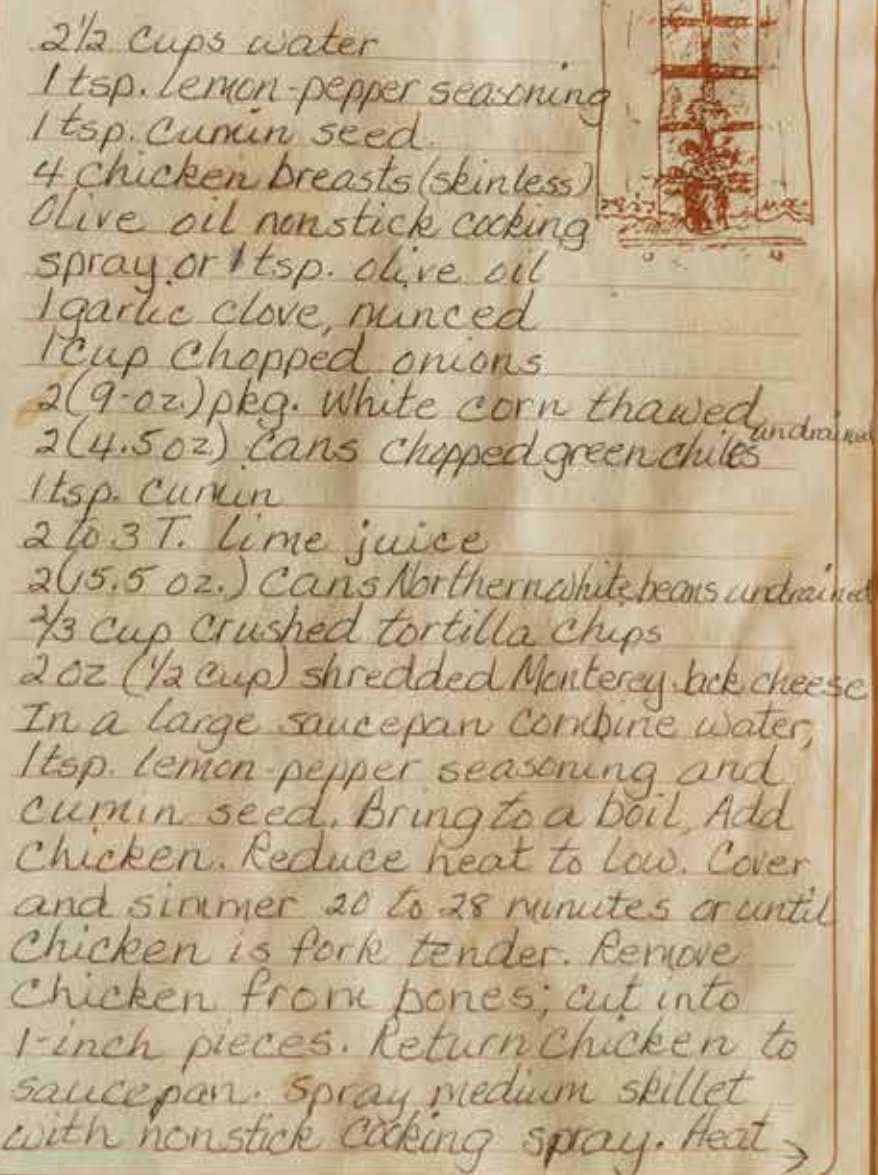 2 1/2 Cups water
1 tsp. lemon-pepper seasoning
1 tsp. Cumin seed
4 chicken breasts (skinless)
Olive oil nonstick cooking
spray or 1 tsp. olive oil
1 garlic clove, minced
1 cup Chopped onions
2 (9-oz.) pkg. White corn thawed
2 (4.5 oz) Cans Chopped green chiles undrained
1 tsp. Cumin
2 to 3 T. lime juice
2 (15.5 oz.) Cans Northern white beans undrained
2/3 Cup Crushed tortilla Chips
2 oz (1/2 cup) shredded Monterey Jack cheese
In a large saucepan Combine water,
1 tsp. lemon-pepper seasoning and
cumin seed. Bring to a boil, Add
Chicken. Reduce heat to low. Cover
and simmer 20 to 28 minutes or until
Chicken is fork tender. Remove
Chicken from bones; cut into
1-inch pieces. Return Chicken to
saucepan. Spray medium skillet
with nonstick Cooking spray. Heat →